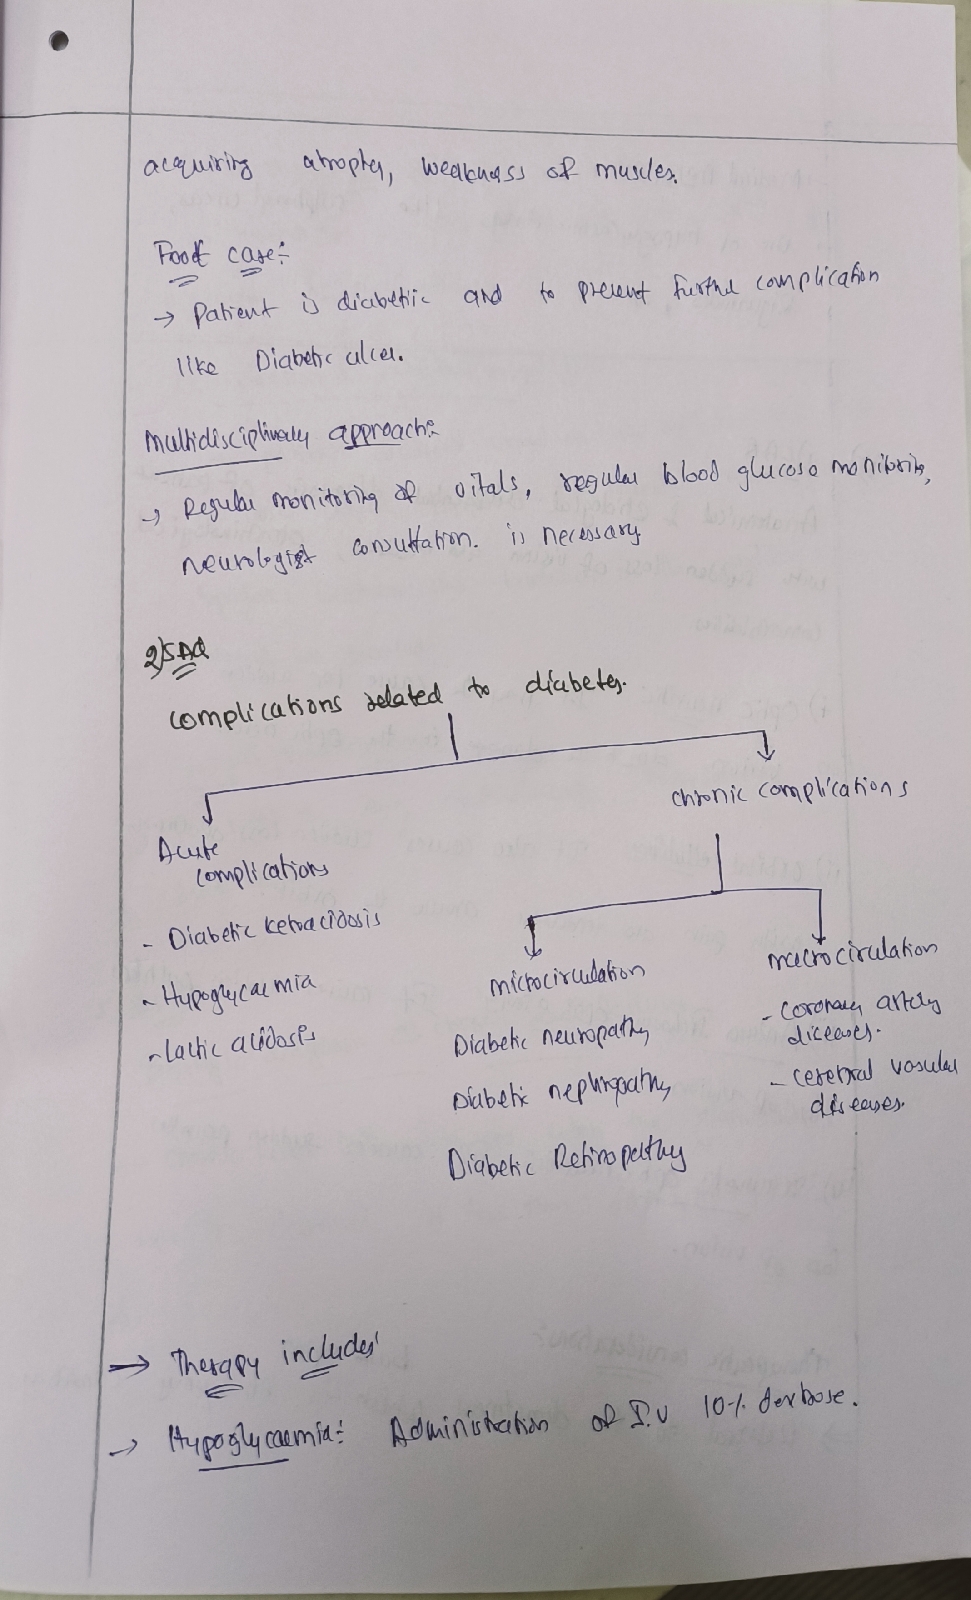 acquiring atrophy, weakness of muscles.
Foot care:
→ Patient is diabetic and to prevent further complication
like Diabetic ulcer.
Multidisciplinary approach:
→ Regular monitoring of vitals, regular blood glucose monitoring,
neurologist consultation. is necessary
2) SAQ
complications related to diabetes.
chronic complications
Acute
complications
- Diabetic ketoacidosis
- Hypoglycaemia
- Lactic acidosis
microcirculation
Diabetic neuropathy
Diabetic nephropathy
Diabetic Retinopathy
macrocirculation
- coronary artery
diseases.
- cerebral vascular
diseases.
→ Therapy includes
→ Hypoglycaemia: Administration of I.V 10% dextrose.